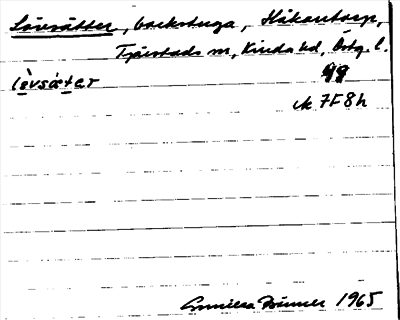 Lövsätter, backstuga, Håkantorp,
Tjärstads sn, Kinda hd, Östg. l.
lö̀vsæ̀t̀er
ek 7F8h
Gunilla 1965